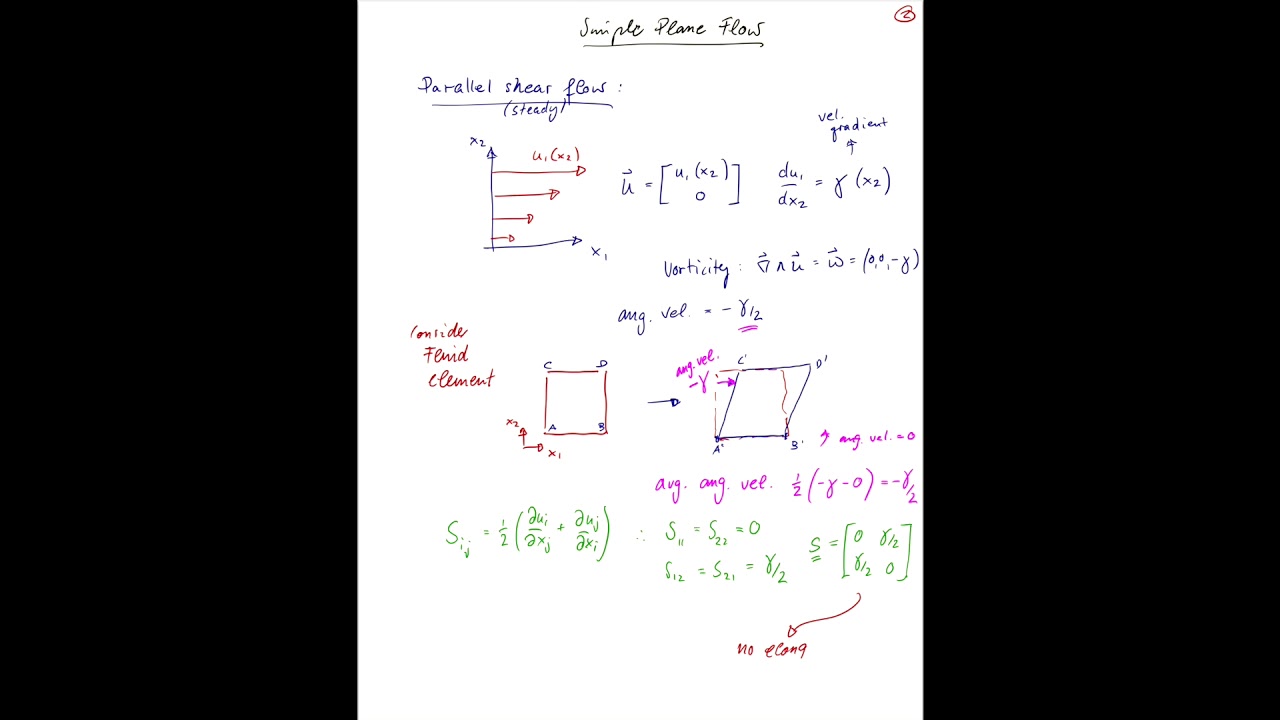 ②
Simple Plane Flow
Parallel shear flow :
(steady)
vel.
gradient
x₂
u₁(x₂)
x₁
u⃗ = [u₁(x₂) 0]
du₁/dx₂ = γ(x₂)
Vorticity : ∇⃗ ∧ u⃗ = ω⃗ = (0,0,-γ)
ang. vel. = - γ/2
Consider
Fluid
element
C D
A B
x₂
x₁
ang. vel.
-γ
C' D'
A' B'
ang. vel. = 0
avg. ang. vel. ½(-γ-0) = -γ/2
Sᵢⱼ = ½(∂uᵢ/∂xⱼ + ∂uⱼ/∂xᵢ) ∴ S₁₁ = S₂₂ = 0
S₁₂ = S₂₁ = γ/2
S = [0 γ/2
γ/2 0]
no elong